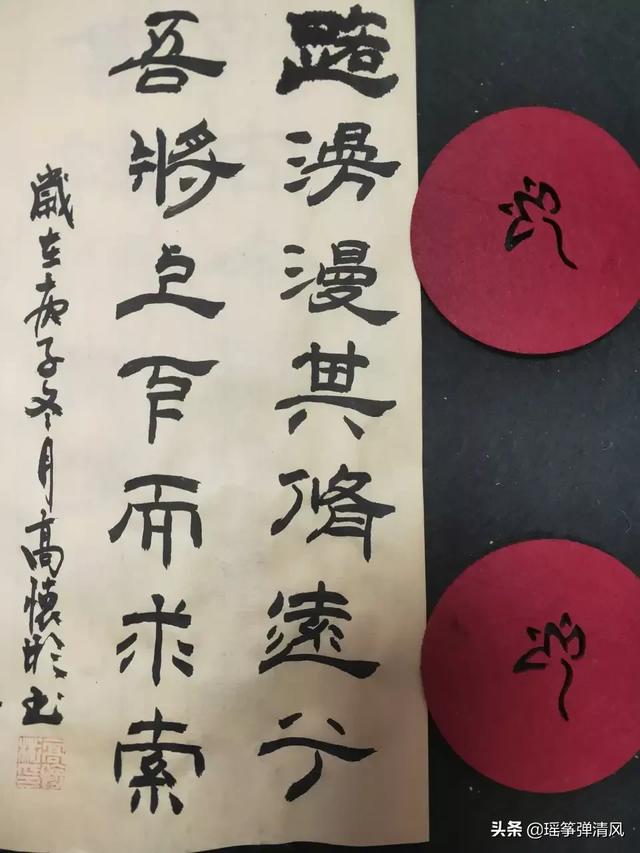 路漫漫其脩遠兮
吾將上下而求索
歲在庚子冬月高懷書
头条 @瑶筝弹清风